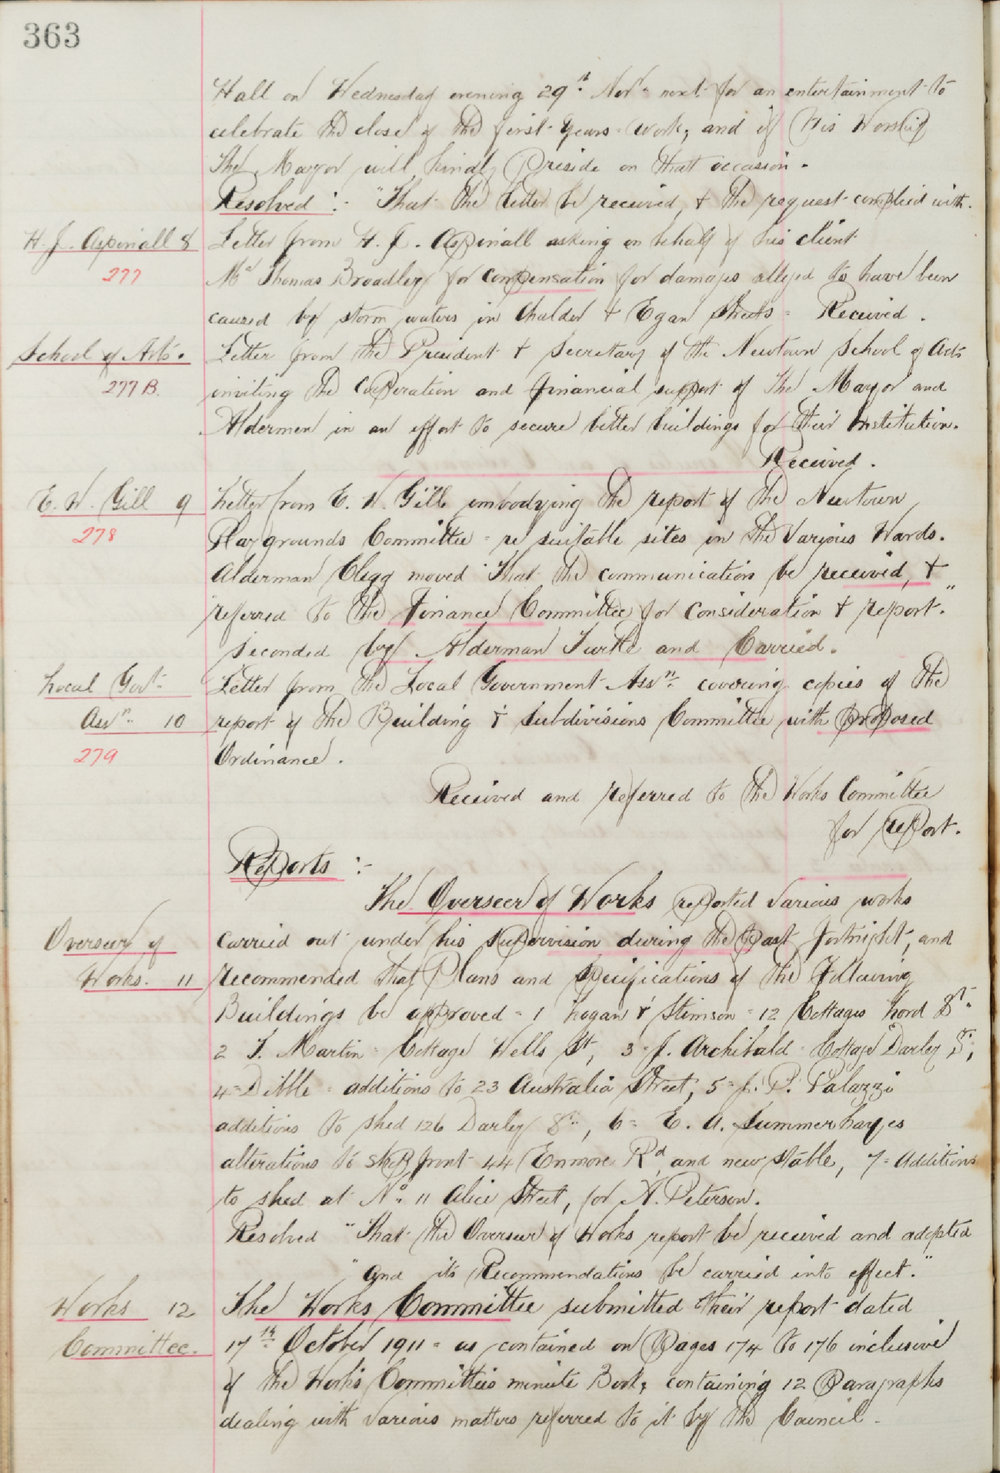 363
Hall on Wednesday evening 29th Novr next for an entertainment to
celebrate the close of the first years work, and if His Worship
The Mayor will kindly Preside on that occasion.
Resolved :- "That the letter be received, & the request complied with.
H. J. Aspinall 8 Letter from H. J. Aspinall asking on behalf of his client
277 Mr Thomas Broadley for Compensation for damages alleged to have been
caused by storm waters in Chelder & Egan Streets - Received.
School of Arts. Letter from the President & Secretary of the Newtown School of Arts
277B. inviting the Cooperation and financial support of The Mayor and
Aldermen in an effort to secure better buildings for their Institution.
Received.
E. W. Gill 9 Letter from E. W. Gill embodying the report of the Newtown
278 Playgrounds Committee - re suitable sites in the Various Wards.
Alderman Clegg moved "That the communication be received, &
referred to the Finance Committee for consideration & report."
Seconded by Alderman Turtle and Carried.
Local Govt. Letter from the Local Government Assn. covering copies of the
Assn. 10 report of the Building & Subdivisions Committee with proposed
279 Ordinance.
Received and referred to the Works Committee
for report.
Reports :-
The Overseer of Works reported various works
Overseer of carried out under his supervision during the Past fortnight, and
Works. 11 recommended that Plans and Specifications of the Following
Buildings be approved - 1 Logan & Stimson - 12 Cottages Lord St.
2 T. Martin - Cottage Wells St, 3 - J. Archibald - Cottage Darley St,
4 - Dibble - additions to 23 Australia Street, 5 - J. P. Palazzi
additions to shed 126 Darley St., 6 - E. A. Summerhayes
alterations to shop front 44 Enmore Rd and new stable, 7 - Additions
to shed at No. 11 Alice Street, for A. Peterson.
Resolved "That the Overseer of Works report be received and adopted
"and its Recommendations be carried into effect."
Works 12 The Works Committee submitted their report dated
Committee. 17th October 1911 - as contained on Pages 174 to 176 inclusive
of the Works Committees minute Book, containing 12 Paragraphs
dealing with various matters referred to it by the Council -